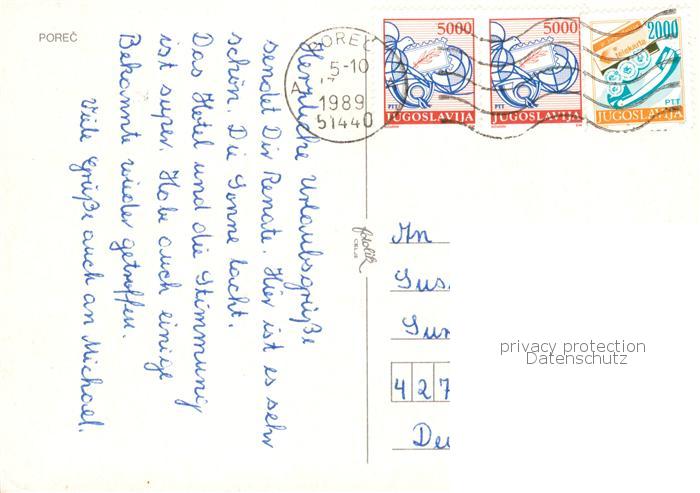 POREČ
Herzliche Urlaubsgrüße
sendet Dir Renate. Hier ist es sehr
schön. Die Sonne lacht.
Das Hotel und die Stimmung
ist super. Habe auch einige
Bekannte wieder getroffen.
Viele Grüße auch an Michael.
POREČ
5-10
A
1989
51440
5000
PTT
JUGOSLAVIJA
5000
PTT
JUGOSLAVIJA
2000
telekarta
PTT
JUGOSLAVIJA
fotolik
CELJE
An
Sus
Sur
427
Deu
privacy protection
Datenschutz